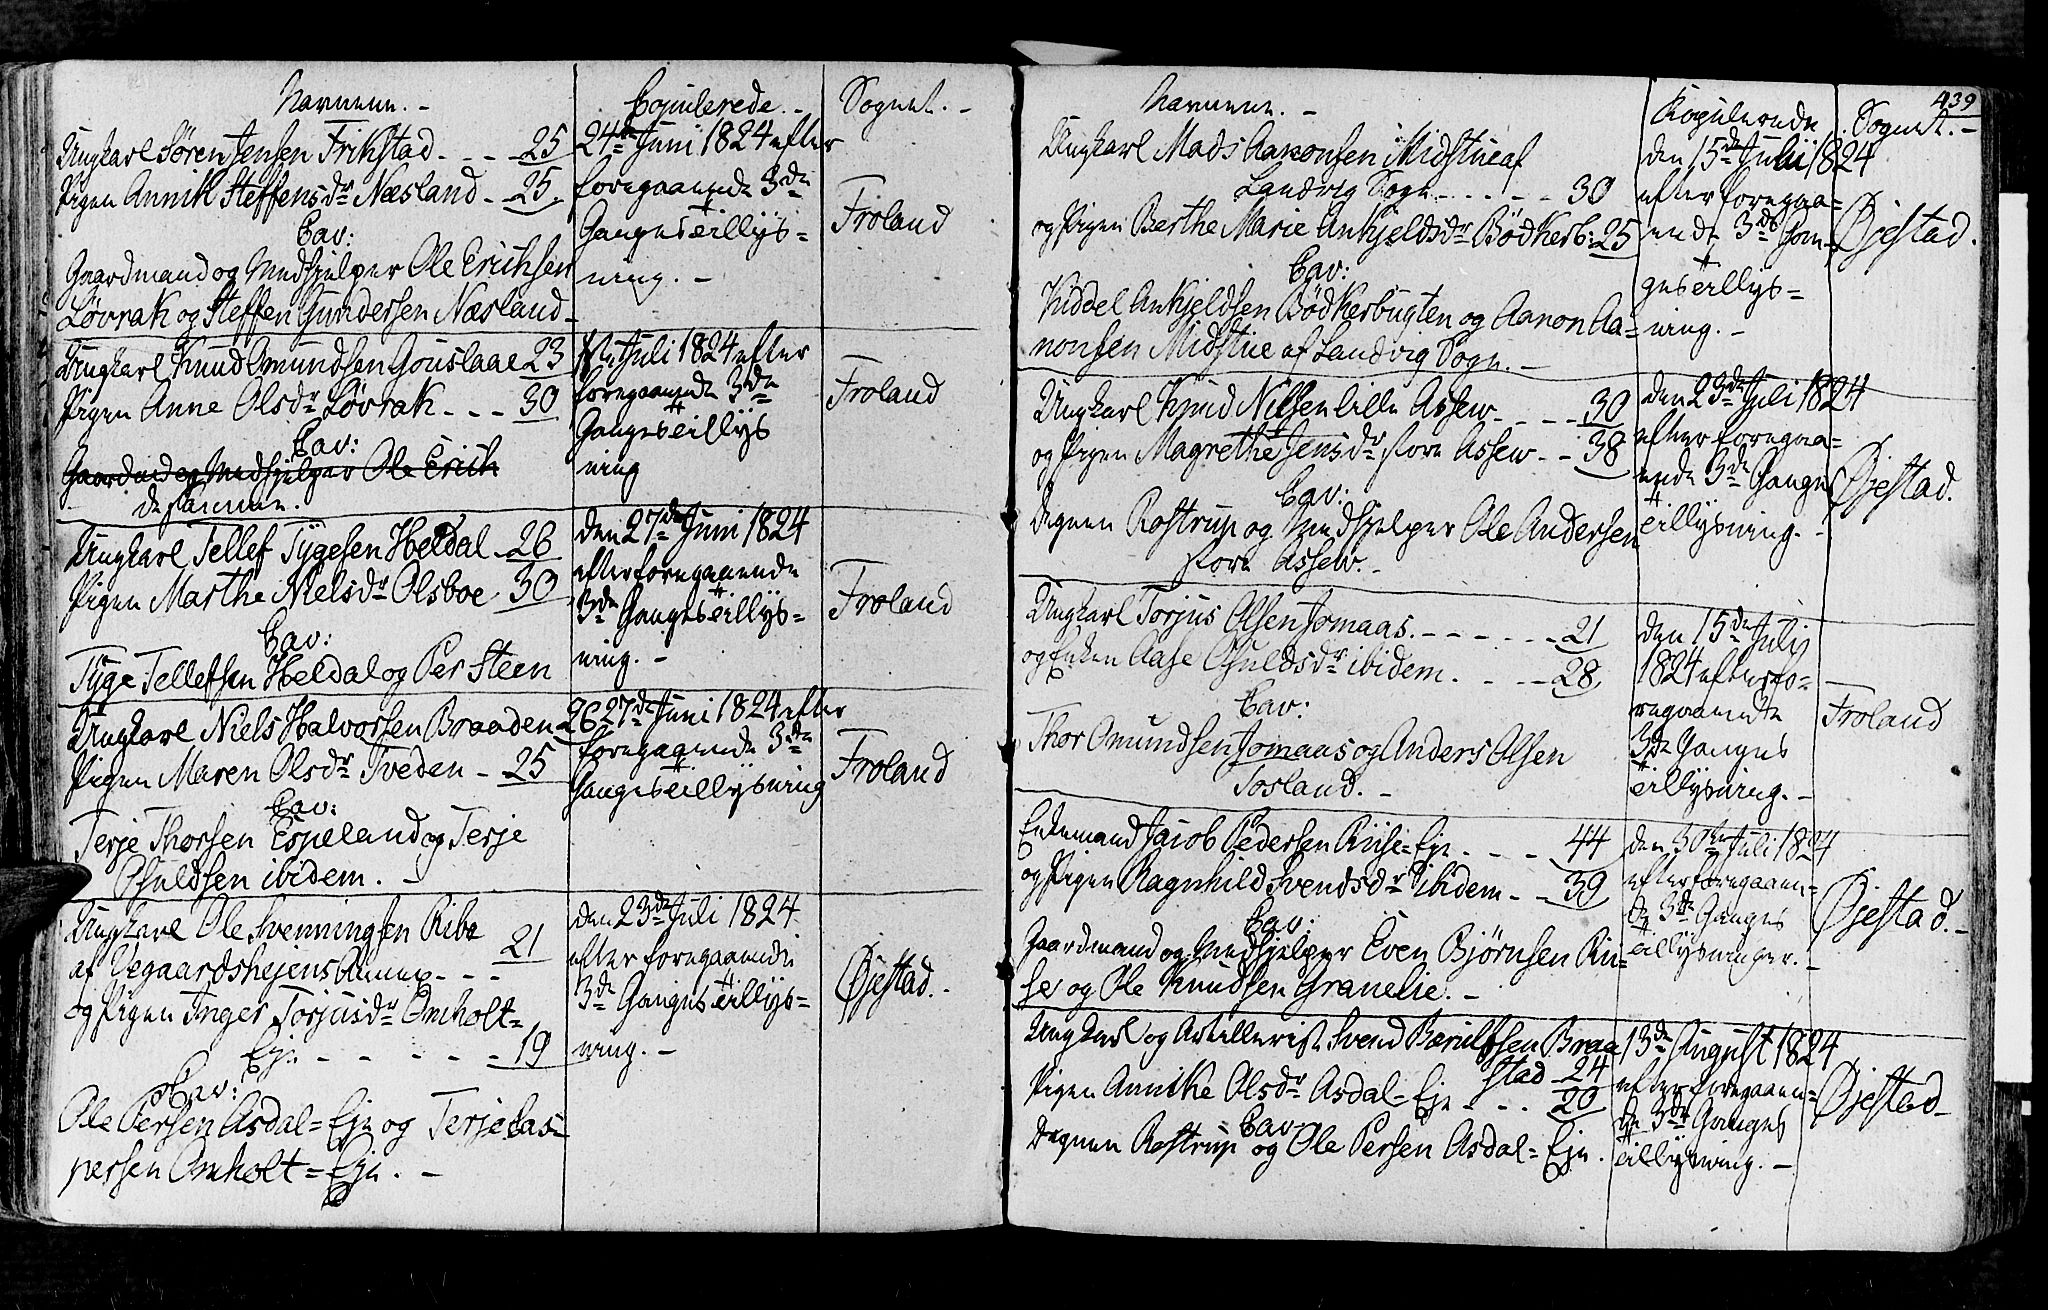 Navnene. -
Copulerede. -
Sognet. -
Ungkarl Søren Jensen Frikstad - - - 25
Pigen Annik Steffensdr Næsland - 25.
Cav:
Gaardmand og Medhjelper Ole Erichsen
Løvrak og Steffen Gundersen Næsland -
24de Juni 1824 efter
foregaaende 3de
Ganges Tillys=
ning. -
Froland
Ungkarl Knud Omundsen Gouslaae 23
Pigen Anne Olsdr Løvrak - - - 30
Cav:
Gaardmd og Medhjelper Ole Erich
de samme.
Juli 1824 efter
foregaaende 3de
Ganges Tillys
ning
Froland
Ungkarl Tellef Tygesen Heldal - 26
Pigen Marthe Nielsdr Olsboe 30
Cav:
Tyge Tellefsen Heldal og Per Steen
den 27de Juni 1824
efter foregaaende
3de Ganges Tillys=
ning. -
Froland
Ungkarl Niels Halvorsen Braaden 26
Pigen Maren Olsdr Tveden - 25
Cav:
Terje Thorsen Espeland og Terje
Osuldsen ibidem. -
27de Juni 1824 efter
foregaaende 3de
Ganges Tillysning
Froland
Ungkarl Ole Svenningsen Ribe
af Vegaardshejens Annex - - - 21
og Pigen Inger Torjusdr Omholt=
Eje - - - - - - 19
Cav:
Ole Persen Asdal=Eje og Terje Cas=
persen Omholt=Eje. -
den 23de Juli 1824.
efter foregaaende
3de Ganges Tillys=
ning. -
Øjestad. -
439
Navnene. -
Kopulerede
Sognet. -
Ungkarl Mads Aanonsen Midstue af
Landvig Sogn - - - - - 30
og Pigen Berthe Marie Ankjeldsdr Bödkerb: 25
Cav:
Kiddel Ankjeldsen Bödkerbugten og Aanon Aa=
nonsen Midstue af Landvig Sogn. -
den 15de Julii 1824
efter foregaa=
ende 3de Gan=
ges Tillys=
ning. -
Øjestad.
Ungkarl Knud Nilsen lille Assew - - - - 30
og Pigen Magrethe Jensdr store Assew - - 38
Cav:
Degnen Rostrup og Medhjelper Ole Andersen
store Assew. -
den 23de Juli 1824
efter foregaa=
ende 3de Ganges
Tillysning. -
Øjestad.
Ungkarl Torjus Olsen Jomaas. - - - - - - - 21
og Enken Aase Osuldsdr ibidem. - - - 28
Cav:
Thor Omundsen Jomaas og Anders Olsen
Tosland. -
den 15de Julij
1824 efter fo=
regaaende
3de Ganges
Tillysning. -
Froland
Enkemand Jacob Pedersen Riise=Eje. - - - 44
og Pigen Ragnhild Svendsdr ibidem - - 39
Cav:
Gaardmand og Medhjelper Even Björnsen Rii=
se og Ole Knudsen Granelie. -
den 30te Juli 1824
efter foregaaen=
de 3de Ganges
Tillysninger. -
Øjestad. -
Ungkarl og Artillerist Svend Berulfsen Braa
stad - 24
Pigen Annike Olsdr Asdal=Eje - - - 20
Cav
Degnen Rostrup og Ole Persen Asdal=Eje.
13de August 1824
efter foregaaen=
de 3de Ganges
Tillysning. -
Øjestad -